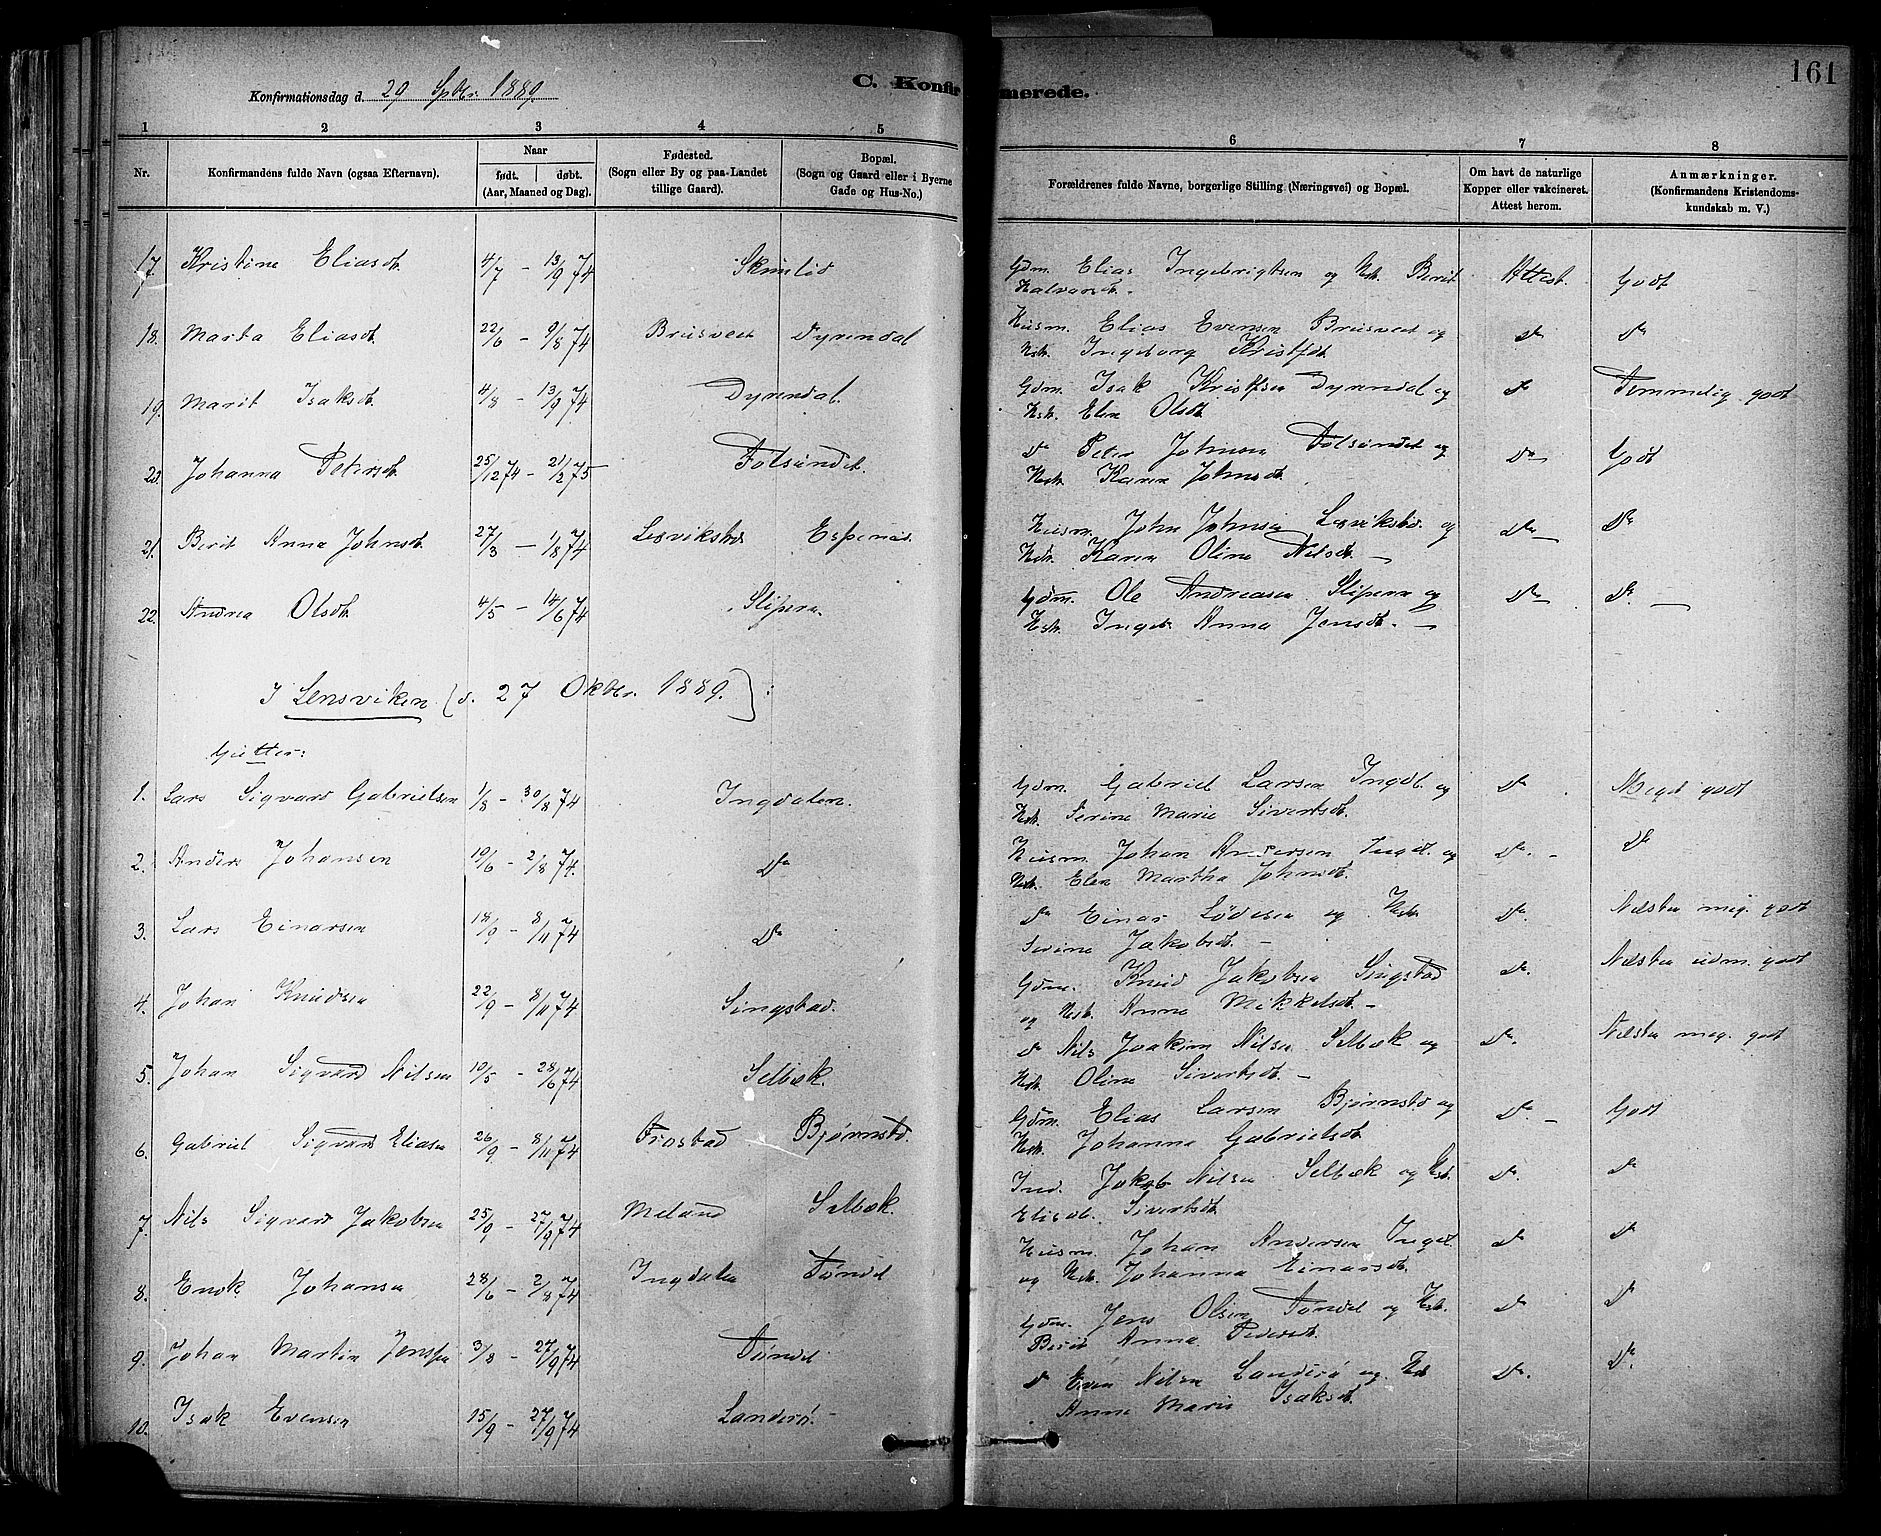 161
Konfirmationsdag d. 29 Septbr. 1889.
C. Konfirmerede.
1 2 3 4 5 6 7 8
Nr.
Konfirmandens fulde Navn (ogsaa Efternavn).
Naar
født. døbt.
(Aar, Maaned og Dag).
Fødested.
(Sogn eller By og paa Landet
tillige Gaard).
Bopæl.
(Sogn og Gaard eller i Byerne
Gade og Hus-No.)
Forældrenes fulde Navne, borgerlige Stilling (Næringsvei) og Bopæl.
Om havt de naturlige
Kopper eller vakcineret.
Attest herom.
Anmærkninger.
(Konfirmandens Kristendoms-
kundskab m. V.)
17. Kristine Eliasdt. 4/7 - 13/9 74 Skumlid Gdm. Elias Ingebrigtsen og Hstr. Berit Attest. Godt
Halvorsdt.
18. Marta Eliasdt. 22/6 - 9/8 74 Brusvedt Dyrendal Husm. Elias Evensen Brusvedt og Do Do
Hstr. Ingeborg Kristfdt.
19. Marit Isaksdt. 4/8 - 13/9 74 Dyrendal. Gdm. Isak Kristfsen Dyrendal og Do Temmelig godt
Hstr. Elen Olsdt.
20. Johanna Petersdt. 25/12 74 - 21/2 75 Folsundet. Do Peter Johnsen Folsundet og Do Godt
Hstr. Karen Johnsdt.
21. Berit Anna Johnsdt. 27/3 - 1/8 74 Lesvikstad Espenæs. Husm. John Johnsen Lesvikstad. og Do Do
Hstr. Karen Oline Nilsdt.
22. Andrea Olsdt. 4/5 - 14/6 74 Slipern. Gdm. Ole Andreasen Slipern og Do Do
Hstr. Ingeb. Anna Jensdt.
I Lensviken (d. 27 Oktbr. 1889.):
Gutter:
1. Lars Sigvard Gabrielsen 1/8 - 30/8 74 Ingdalen. Gdm. Gabriel Larsen Ingdl. og Do Meget godt
Hstr. Serine Marie Sivertsdt.
2. Anders Johansen 10/6 - 2/8 74. Do Husm. Johan Andersen Ingdl. og Do. Do
Hstr. Elen Martha Johnsdt.
3. Lars Einarsen 18/9 - 8/11 74 Do Do Einar Lödesen og Hstr. Do. Næsten meg. godt
Serine Jakobsdt.
4. Johan Knudsen 22/9 - 8/11 74 Singstad. Gdm. Knud Jakobsen Singstad Do. Næsten udm. godt
og Hstr. Anne Mikkelsdt.
5. Johan Sigvard Nilsen 10/5 - 28/6 74 Selbæk. Do Nils Joakim Nilsen Selbæk og Do. Næsten meg. godt
Hstr. Oline Sivertsdt.
6. Gabriel Sigvard Eliasen 26/9 - 8/11 74 Frostad Bjørnstd. Gdm. Elias Larsen Bjørnstd og Do Godt
Hstr. Johanna Gabrielsdt.
7. Nils Sigvard Jakobsen 25/9 - 27/9 74 Meland Selbæk. Ind. Jakob Nilsen Selbæk og Hstr. Do. Do
Elisab. Sivertsdt.
8. Enok Johansen 28/6 - 2/8 74 Ingdalen Tøndel Husm. Johan Andersen Ingdl. Do Do
og Hstr. Johanna Einarsdt.
9. Johan Martin Jenssen 3/8 - 27/9 74 Tøndel Gdm. Jens Olsen Tøndel og Hstr. Do Do
Berit Anna Pedersdt.
10. Isak Evensen 15/9 - 27/9 74 Landerø. Do Even Nilsen Landerø og Hstr. Do. Do.
Anne Marie Isaksdt.